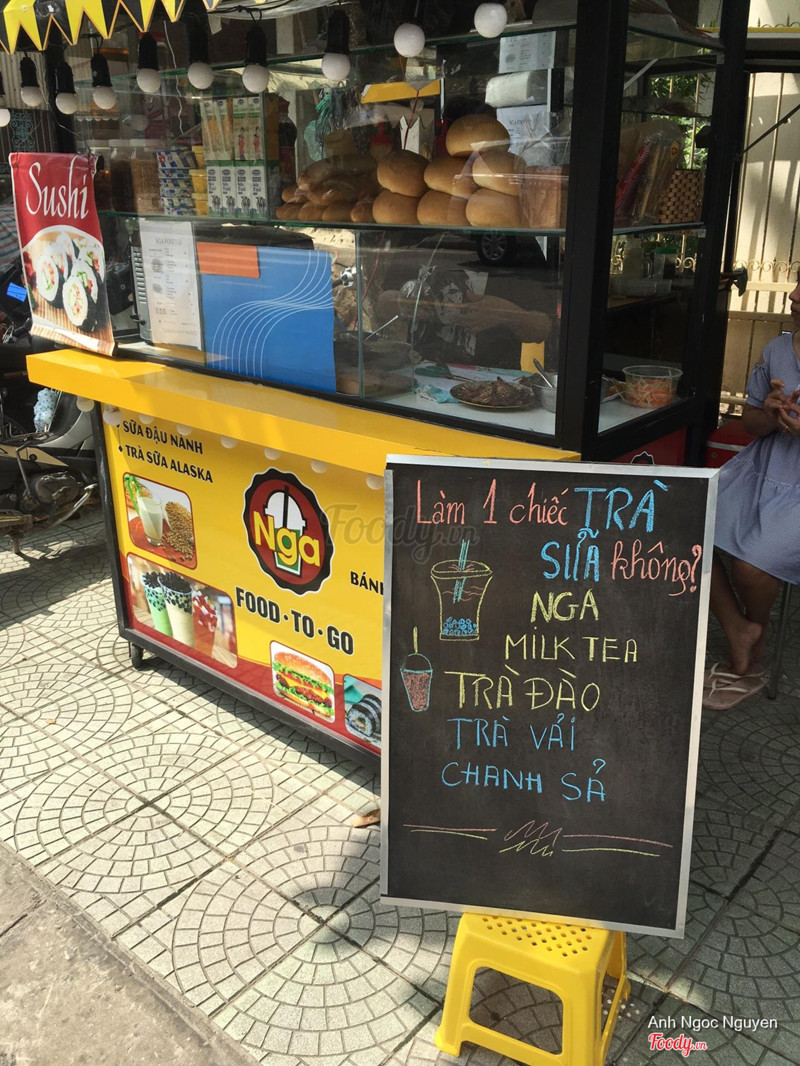 Sushi
SỮA ĐẬU NÀNH
TRÀ SỮA ALASKA
Nga
BÁNH
FOOD·TO·GO
Làm 1 chiếc TRÀ
SỮA không?
NGA
MILK TEA
TRÀ ĐÀO
TRÀ VẢI
CHANH SẢ
Foody.vn
Anh Ngoc Nguyen
Foody.vn